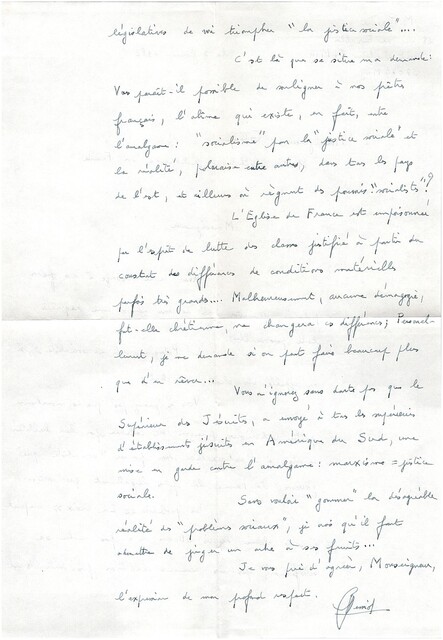 législatives de voir triompher "la justice sociale"....
C'est là que se situe ma demande:
Vous paraît-il possible de souligner à nos prêtres
français, l'abîme qui existe, en fait, entre
l'amalgame: "socialisme" par la "justice sociale" et
la réalité, polonaise entre autres, dans tous les pays
de l'est, et ailleurs où règnent des pouvoirs "socialistes"?
L'Eglise de France est empoisonnée
par l'esprit de lutte des classes justifié à partir du
constat des différences de conditions matérielles
parfois très grandes.... Malheureusement, aucune démagogie,
fut-elle chrétienne, ne changera ces différences; Personnel-
lement, je me demande si on peut faire beaucoup plus
que d'en rêver...
Vous n'ignorez sans doute pas que le
Supérieur des Jésuites, a envoyé à tous les supérieurs
d'établissements jésuites en Amérique du Sud, une
mise en garde contre l'amalgame: marxisme = justice
sociale.
Sans vouloir "gommer" la désagréable
réalité des "problèmes sociaux", je crois qu'il faut
admettre de juger un arbre à ses fruits...
Je vous prie d'agréer, Monseigneur,
l'expression de mon profond respect.